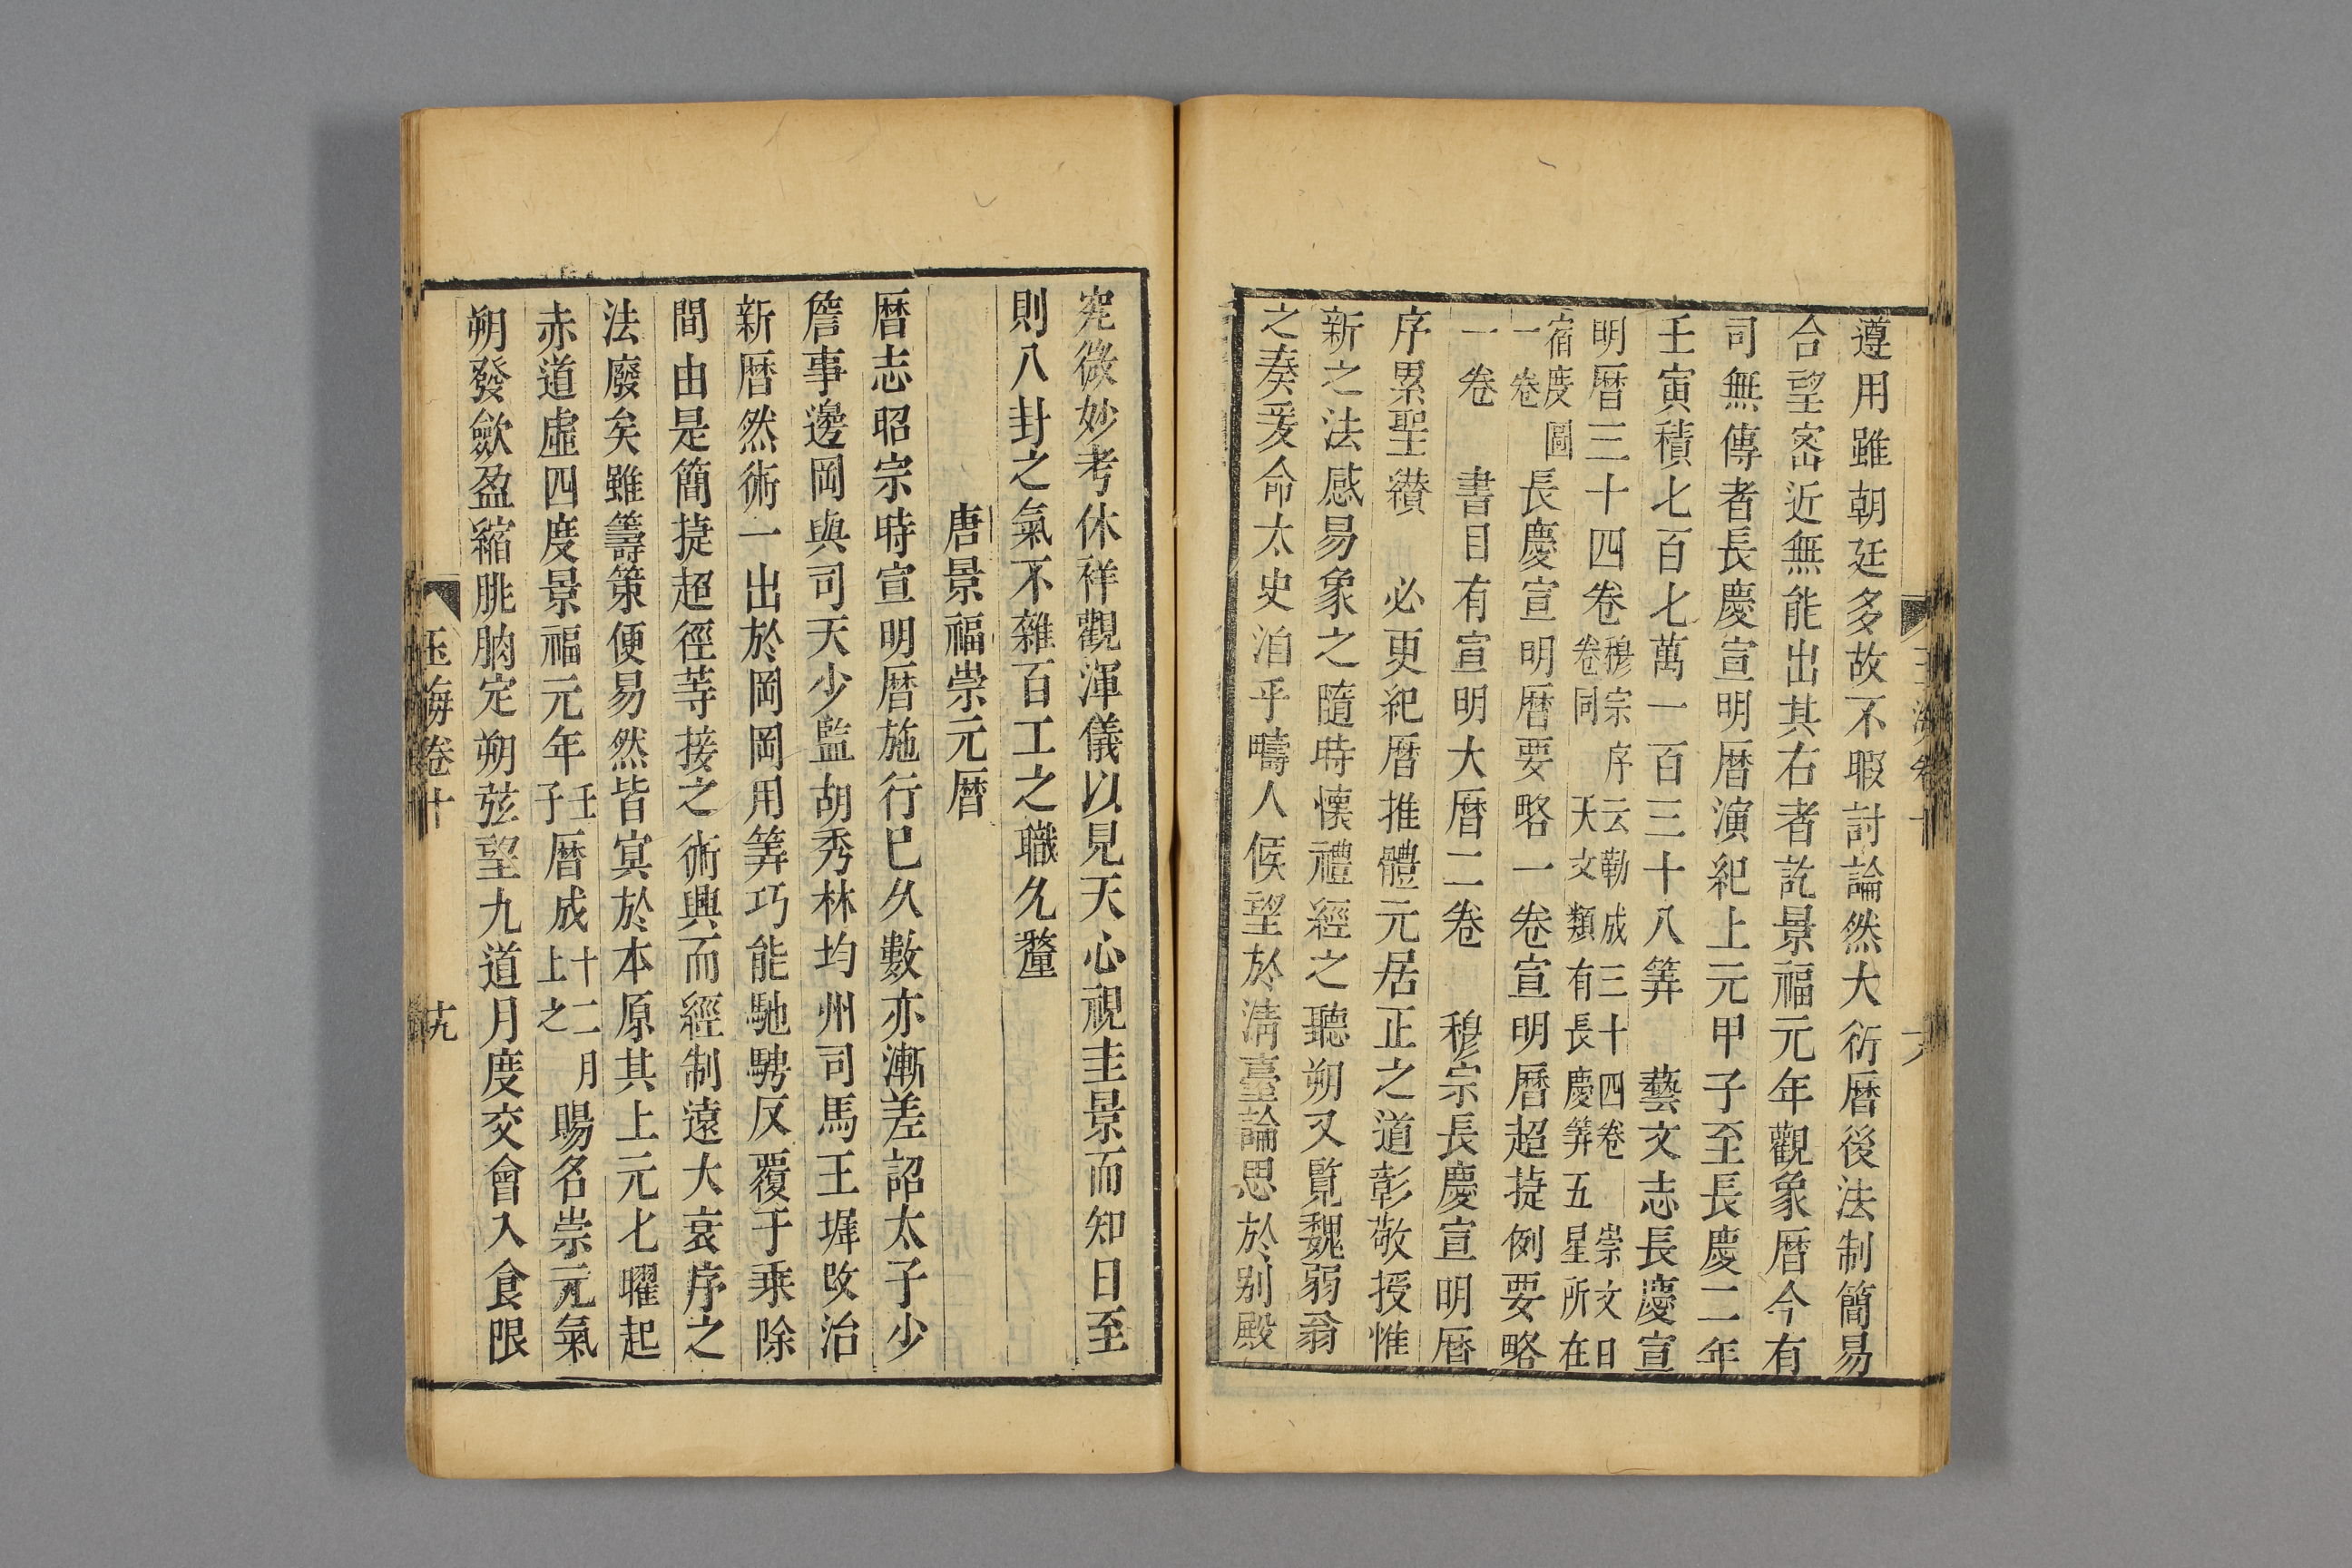 遵用雖朝廷多故不暇討論然大衍曆後法制簡易
合望密近無能出其右者訖景福元年觀象曆今有
司無傳者長慶宣明曆演紀上元甲子至長慶二年
壬寅積七百七萬一百三十八筭　藝文志長慶宣
明曆三十四卷穆宗序云勒成三十四卷　崇文日
卷同　天文類有長慶筭五星所在
宿度圖
一卷　長慶宣明曆要略一卷宣明曆超捷例要略
一卷　書目有宣明大曆二卷　穆宗長慶宣明曆
序累聖纘　必更紀曆推體元居正之道彰敬授惟
新之法感易象之隨時懷禮經之聽朔又覽魏弱翁
之奏爰命太史洎乎疇人候望於清臺論思於别殿
究微妙考休祥觀渾儀以見天心視圭景而知日至
則八封之氣不雜百工之職允釐
唐景福崇元曆
曆志昭宗時宣明曆施行巳久數亦漸差詔太子少
詹事邊岡與司天少監胡秀林均州司馬王墀改治
新曆然術一出於岡岡用筭巧能馳騁反覆于乘除
間由是簡捷超徑等接之術興而經制遠大衰序之
法廢矣雖籌策便易然皆冥於本原其上元七曜起
赤道虛四度景福元年壬子曆成十二月上之賜名崇元氣
朔發斂盈縮朓朒定朔弦望九道月度交會入食限
玉海卷十　十九